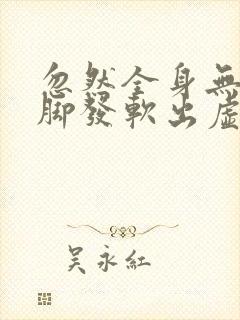 忽然全身無
腳發軟出虛
吳永紅